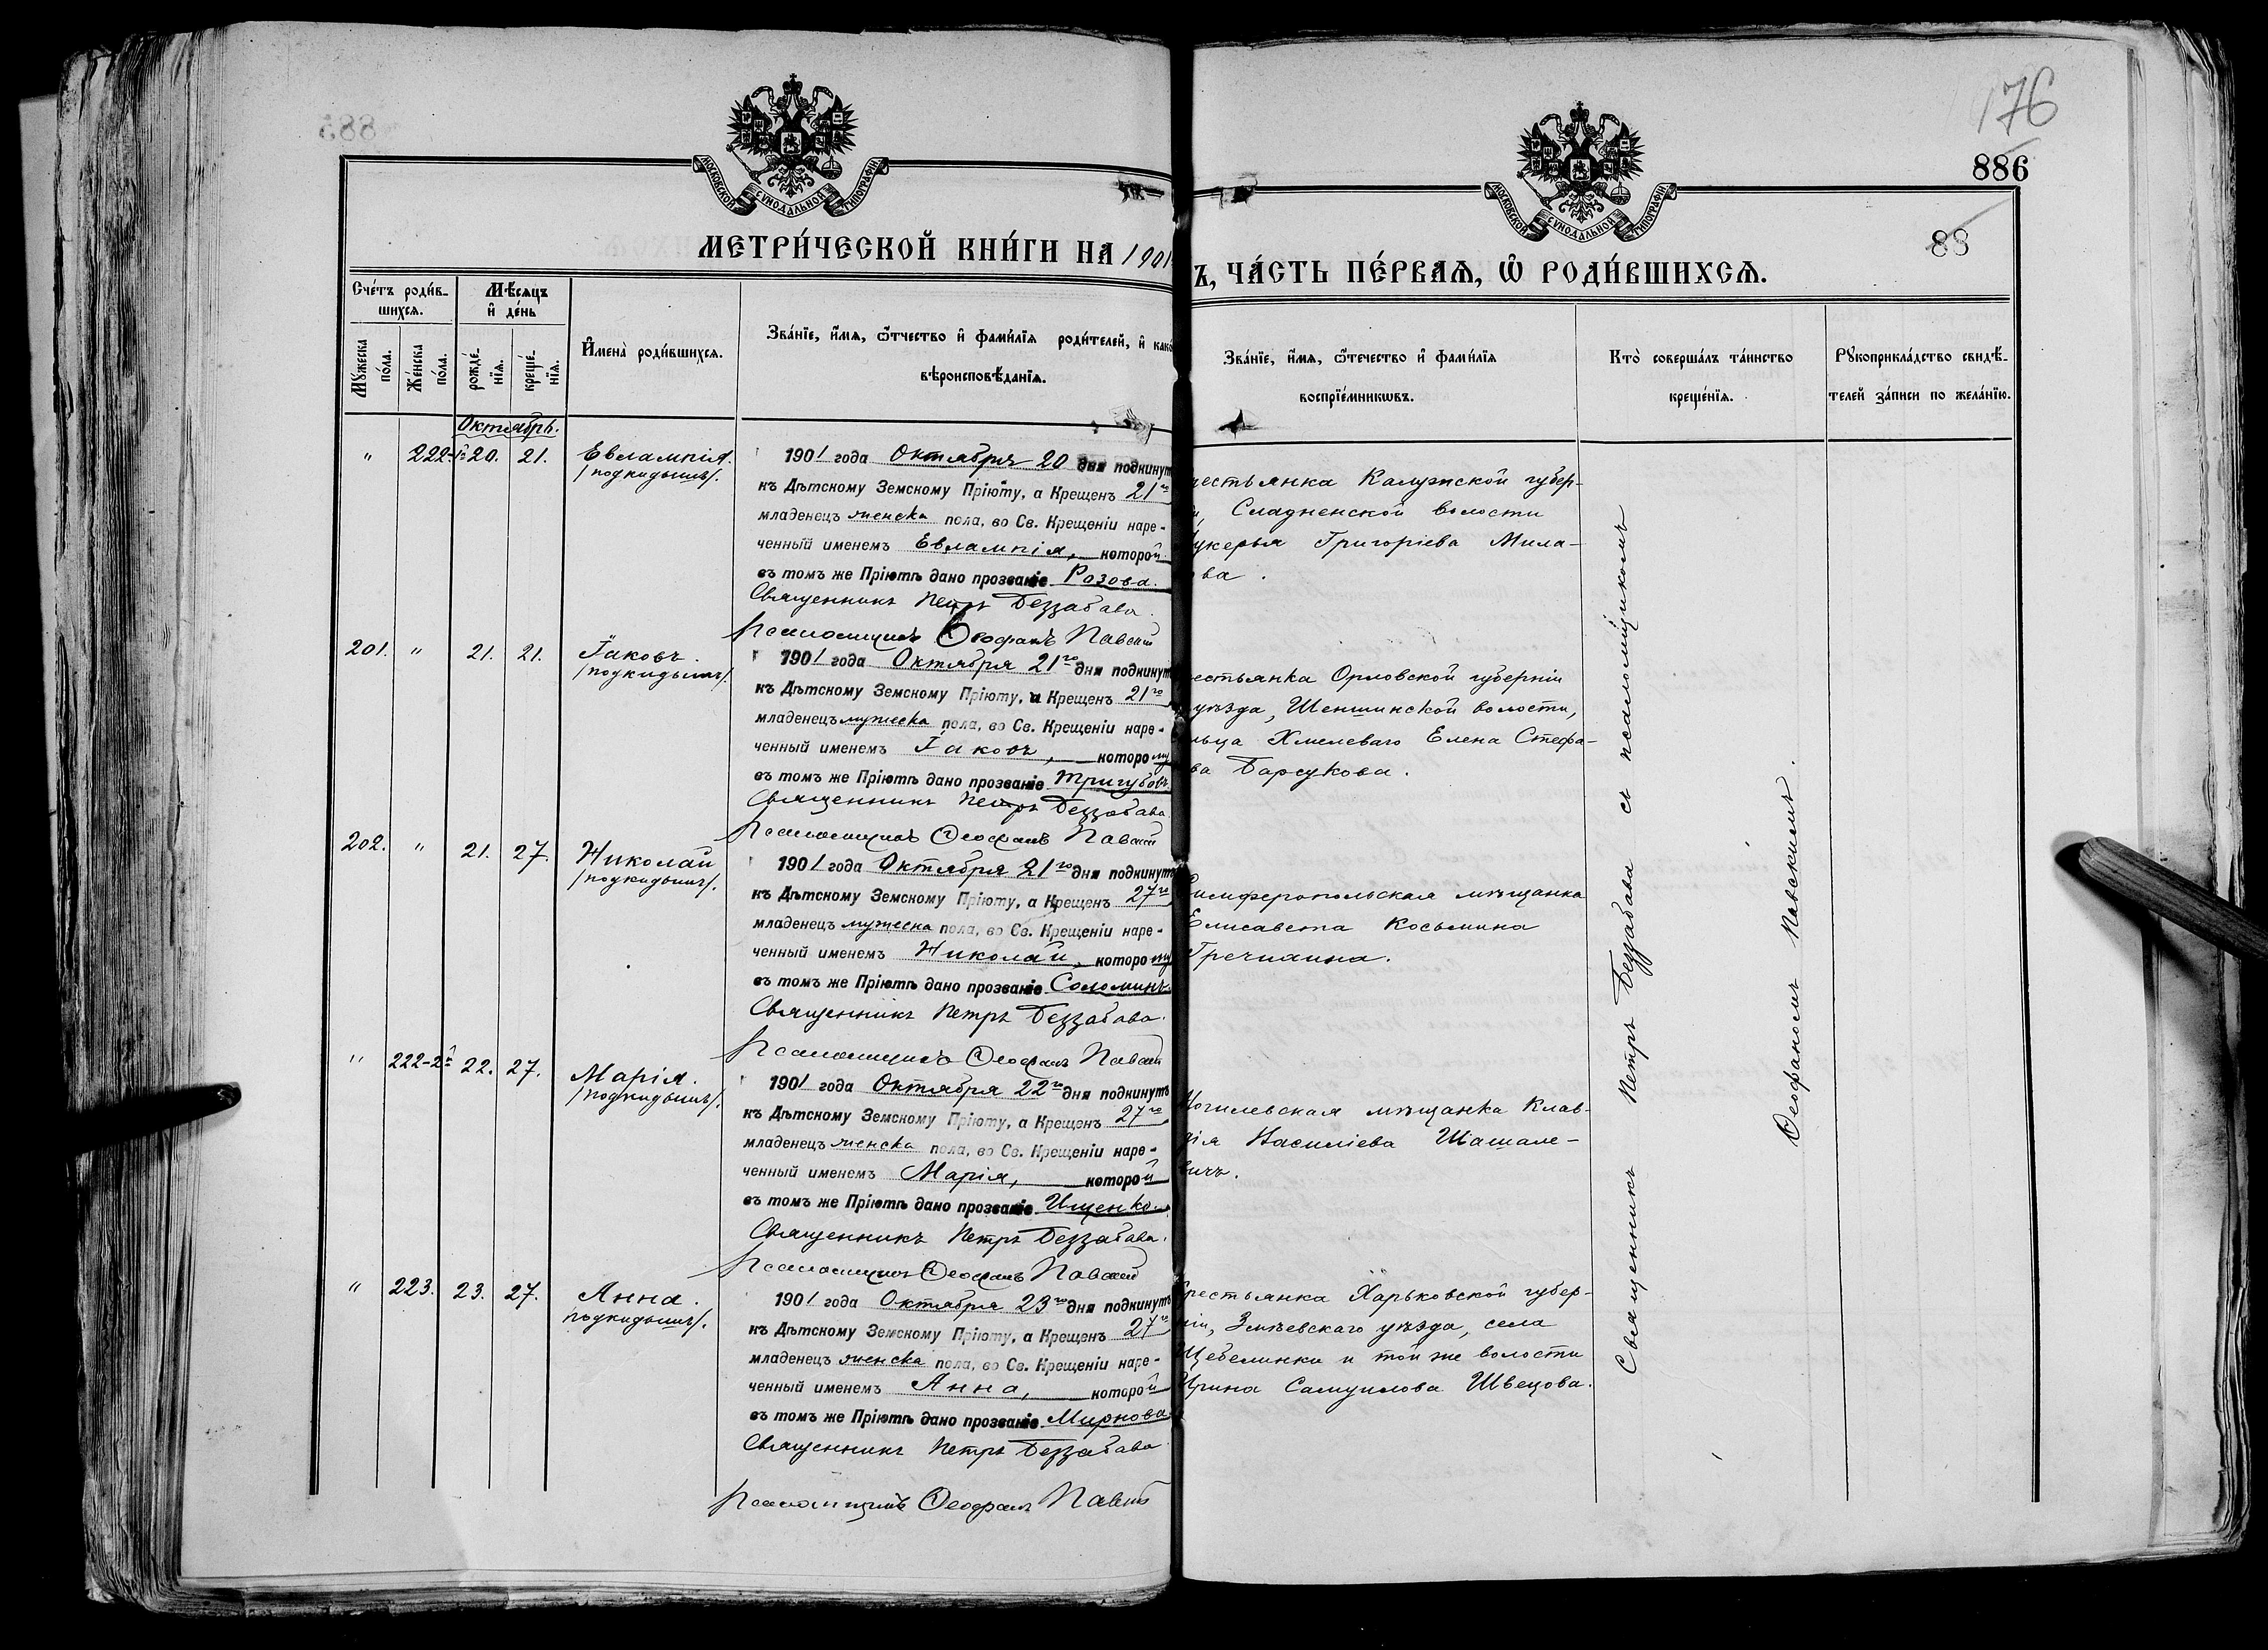 176
886
88
МОСКОВСКОЙ СУНОДАЛЬНОЙ ТИПОГРАФІИ
МОСКОВСКОЙ СУНОДАЛЬНОЙ ТИПОГРАФІИ
МЕТРИ́ЧЕСКОЙ КНИ́ГИ НА 1901
Ъ, ЧА́СТЬ ПЕ́РВАЯ, Ѡ҆ РОДИ́ВШИХСЯ.
Сче́тъ роди́в-
шихся.
Мѣ́сяцъ
и҆ де́нь
Мꙋ́жеска по́ла.
Же́нска по́ла.
рожде́-
нїя.
креще́-
нїя.
И҆мена̀ роди́вшихся.
Зва́нїе, и҆́мя, ѻ҆́тчество и҆ фами́лїя роди́телей, и҆ како
вѣроисповѣ́данїя.
Зва́нїе, и҆́мя, ѻ҆́течество и҆ фами́лїя
воспрїе́мникѡвъ.
Кто̀ соверша́лъ та́инство
креще́нїя.
Рꙋкоприкла́дство свидѣ́-
телей за́писи по жела́нїю.
Октябрь.
" 222-1й 20. 21. Евлампія.
/подкидышъ/.
1901 года Октября 20 дня подкинут
къ Дѣтскому Земскому Пріюту, а Крещенъ 21го
младенецъ женска пола, во Св. Крещеніи наре-
ченный именемъ Евлампія, которой
въ томъ же Пріютѣ дано прозваніе Розова.
Священникъ Петръ Беззабава.
Псаломщикъ Ѳеофанъ Павскій
рестьянка Калужской губер-
Сладненской волости
укерья Григоріева Мила-
ова.
201. " 21. 21. Іаковъ.
/подкидышъ/.
1901 года Октября 21го дня подкинут
къ Дѣтскому Земскому Пріюту, а Крещенъ 21го
младенецъ мужеска пола, во Св. Крещеніи наре-
ченный именемъ Іаковъ, которому
въ томъ же Пріютѣ дано прозваніе Тригубовъ.
Священникъ Петръ Беззабава
Псаломщикъ Ѳеофанъ Павскій
естьянка Орловской губерніи
уѣзда, Шеншинской волости,
льца Хмелеваго Елена Стефа-
ва Барсукова.
202. " 21. 27. Николай
/подкидышъ/.
1901 года Октября 21го дня подкинутъ
къ Дѣтскому Земскому Пріюту, а Крещенъ 27го
младенецъ мужеска пола, во Св. Крещеніи наре-
ченный именемъ Николай, которому
въ томъ же Пріютѣ дано прозваніе Соломинъ.
Священникъ Петръ Беззабава.
Псаломщикъ Ѳеофанъ Павскій
Симферопольская мѣщанка
Елисавета Косьмина
Гречанина.
" 222-2й 22. 27. Марія.
/подкидышъ/.
1901 года Октября 22го дня подкинутъ
къ Дѣтскому Земскому Пріюту, а Крещенъ 27го
младенецъ женска пола, во Св. Крещеніи наре-
ченный именемъ Марія, которой
въ томъ же Пріютѣ дано прозваніе Ищенко.
Священникъ Петръ Беззабава.
Псаломщикъ Ѳеофанъ Павскій
Могилевская мѣщанка Клав-
дія Василіева Шашале-
вичъ.
" 223. 23. 27. Анна.
/подкидышъ/.
1901 года Октября 23го дня подкинутъ
къ Дѣтскому Земскому Пріюту, а Крещенъ 27го
младенецъ женска пола, во Св. Крещеніи наре-
ченный именемъ Анна, которой
въ томъ же Пріютѣ дано прозваніе Мирнова
Священникъ Петръ Беззабава
Псаломщикъ Ѳеофанъ Павскій
Крестьянка Харьковской губер-
ніи, Зміевскаго уѣзда, села
Щебелинки и той же волости
Ирина Самуилова Швецова.
Священникъ Петръ Беззабава съ псаломщикомъ
Ѳеофаномъ Павскимъ.